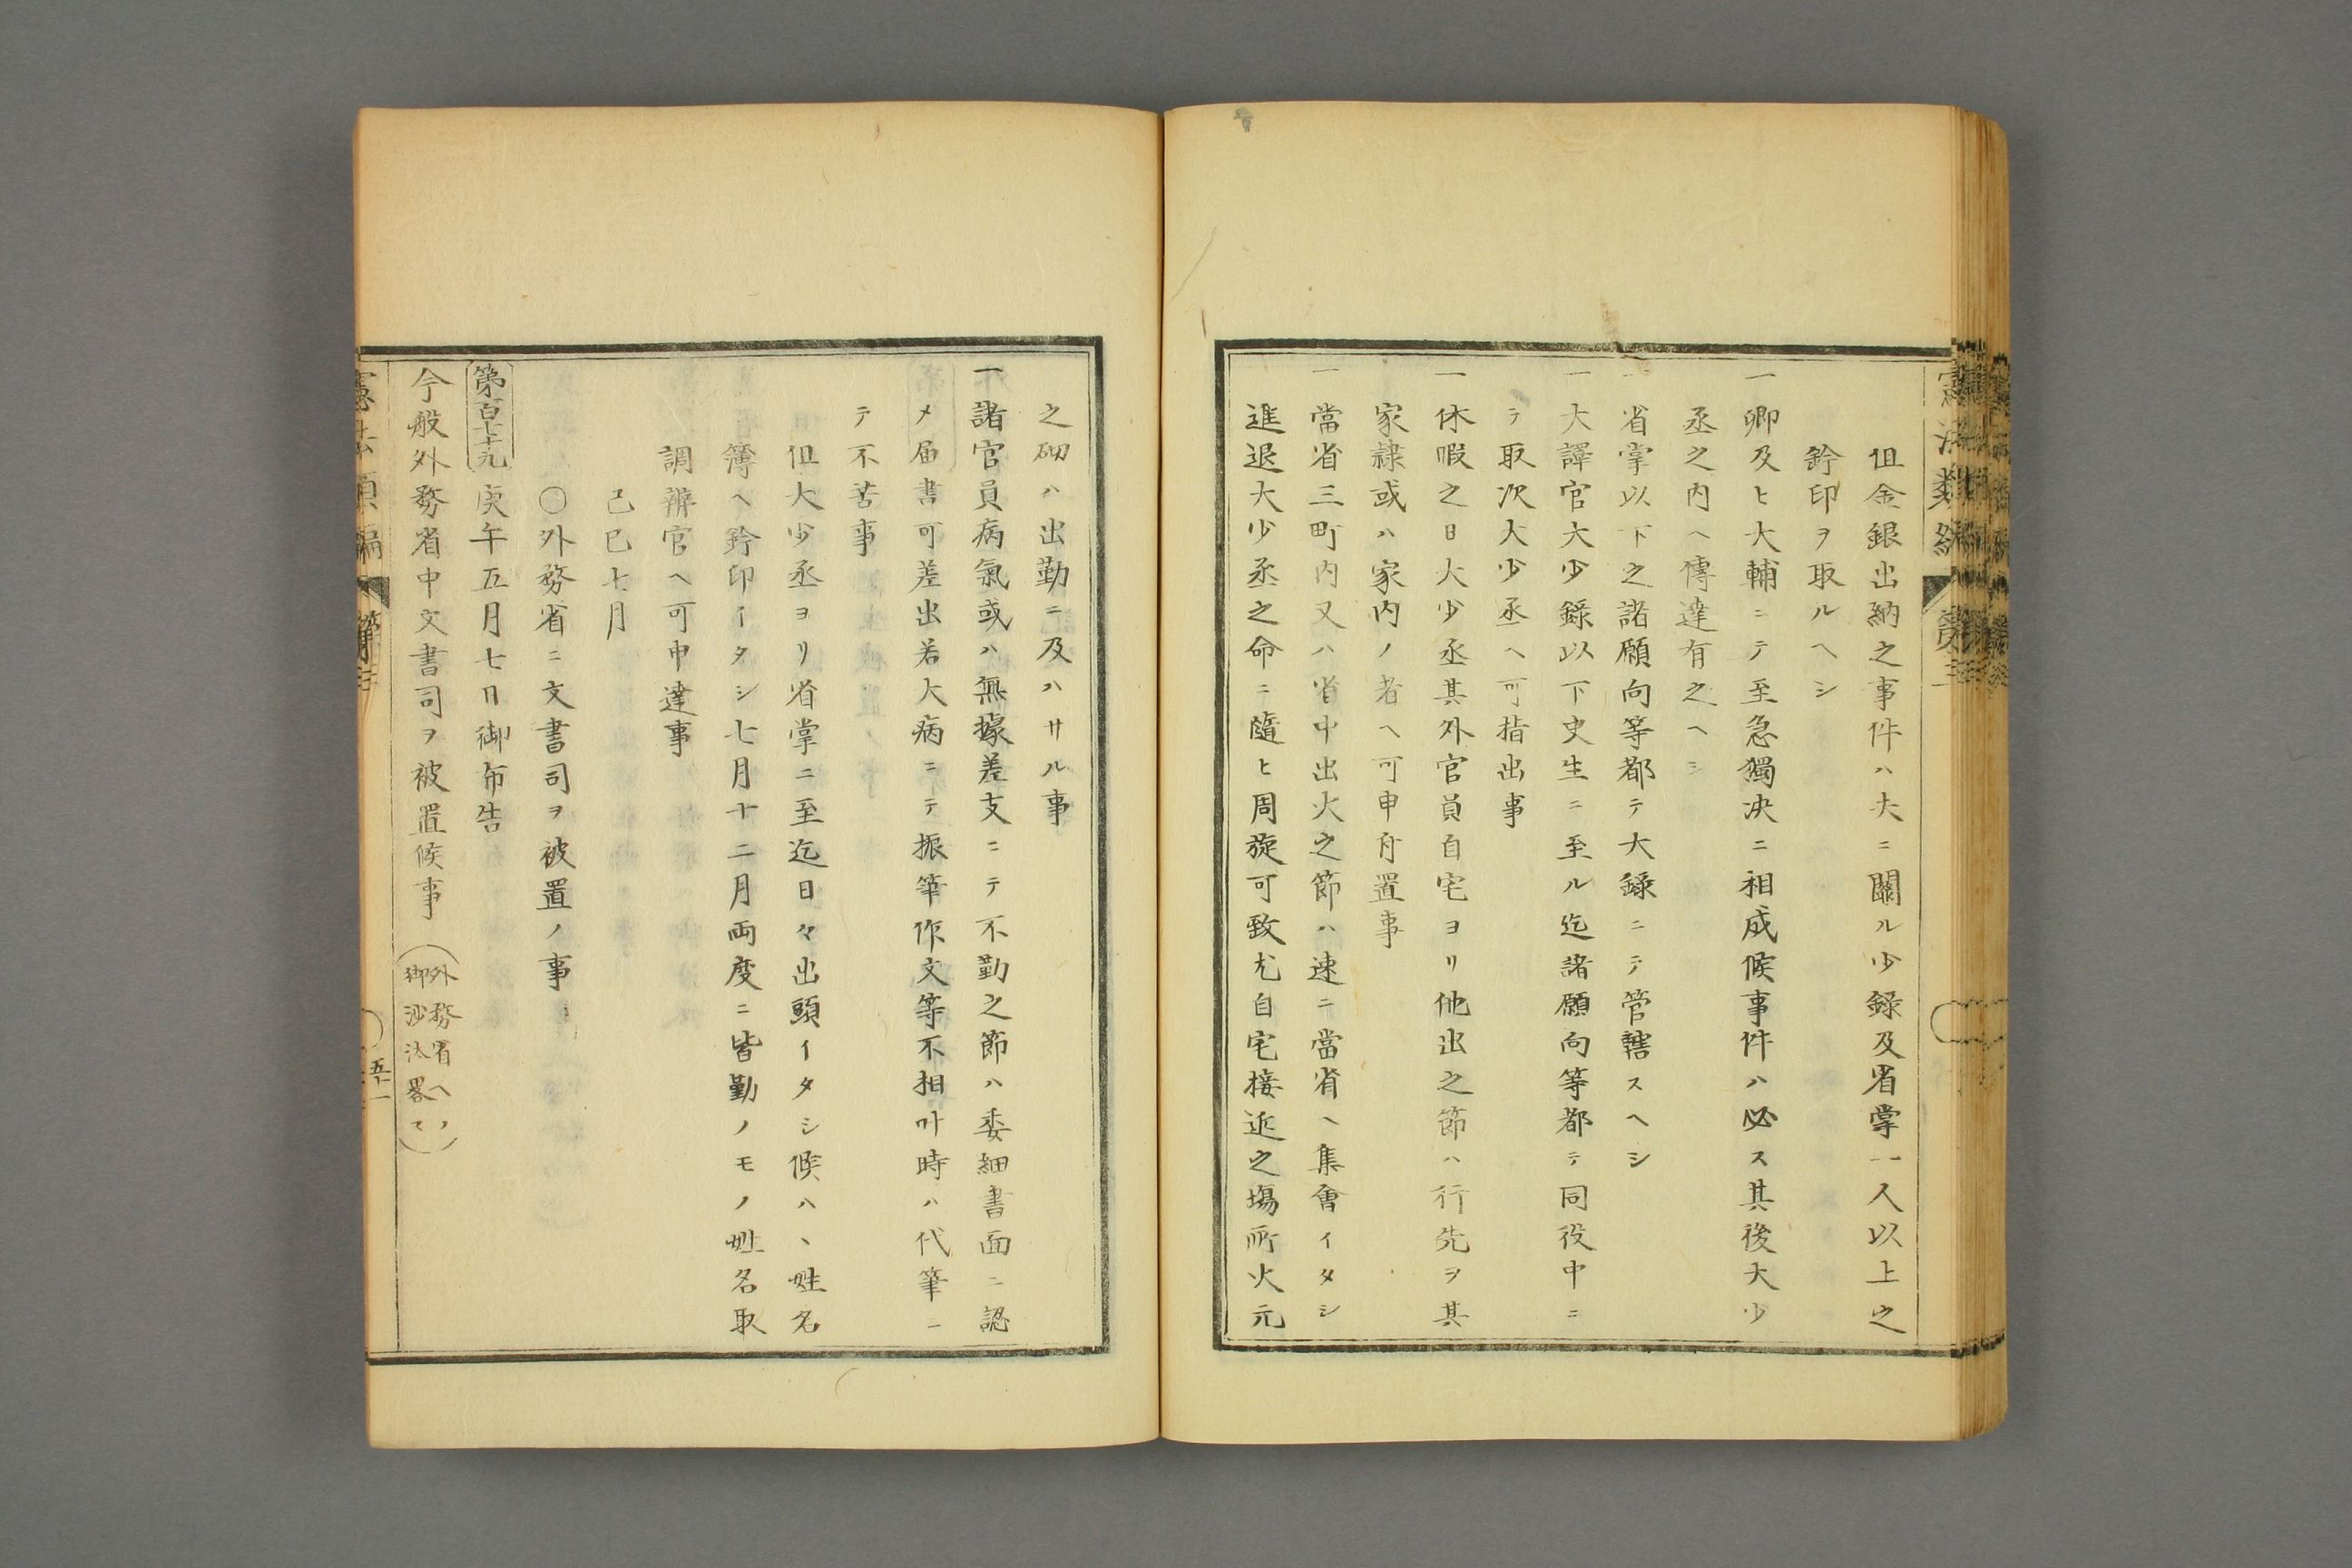 但金銀出納之事件ハ大ニ關ル少録及省掌一人以上之
鈐印ヲ取ルヘシ
一卿及ヒ大輔ニテ至急獨决ニ相成候事件ハ必ス其後大少
丞之内ヘ傳達有之ヘシ
一省掌以下之諸願向等都テ大録ニテ管轄スヘシ
一大譯官大少録以下史生ニ至ル迄諸願向等都テ同役中ニ
テ取次大少丞ヘ可指出事
一休暇之日大少丞其外官員自宅ヨリ他出之節ハ行先ヲ其
家隷或ハ家内ノ者ヘ可申付置事
一當省三町内又ハ省中出火之節ハ速ニ當省ヘ集會イタシ
進退大少丞之命ニ隨ヒ周旋可致尤自宅接近之塲所火元
之砌ハ出勤ニ及ハサル事
一諸官員病氣或ハ無據差支ニテ不勤之節ハ委細書面ニ認
メ届書可差出若大病ニテ振筆作文等不相叶時ハ代筆ニ
テ不苦事
但大少丞ヨリ省掌ニ至迄日々出頭イタシ候ハヽ姓名
簿ヘ鈐印イタシ七月十二月両度ニ皆勤ノモノ姓名取
調辨官ヘ可申達事
己巳七月
〇外務省ニ文書司ヲ被置ノ事
第百十九 庚午五月七日御布告
今般外務省中文書司ヲ被置候事（外務省ヘノ
御沙汰畧ス）
憲法類編 第三
五十一
憲法類編 第三